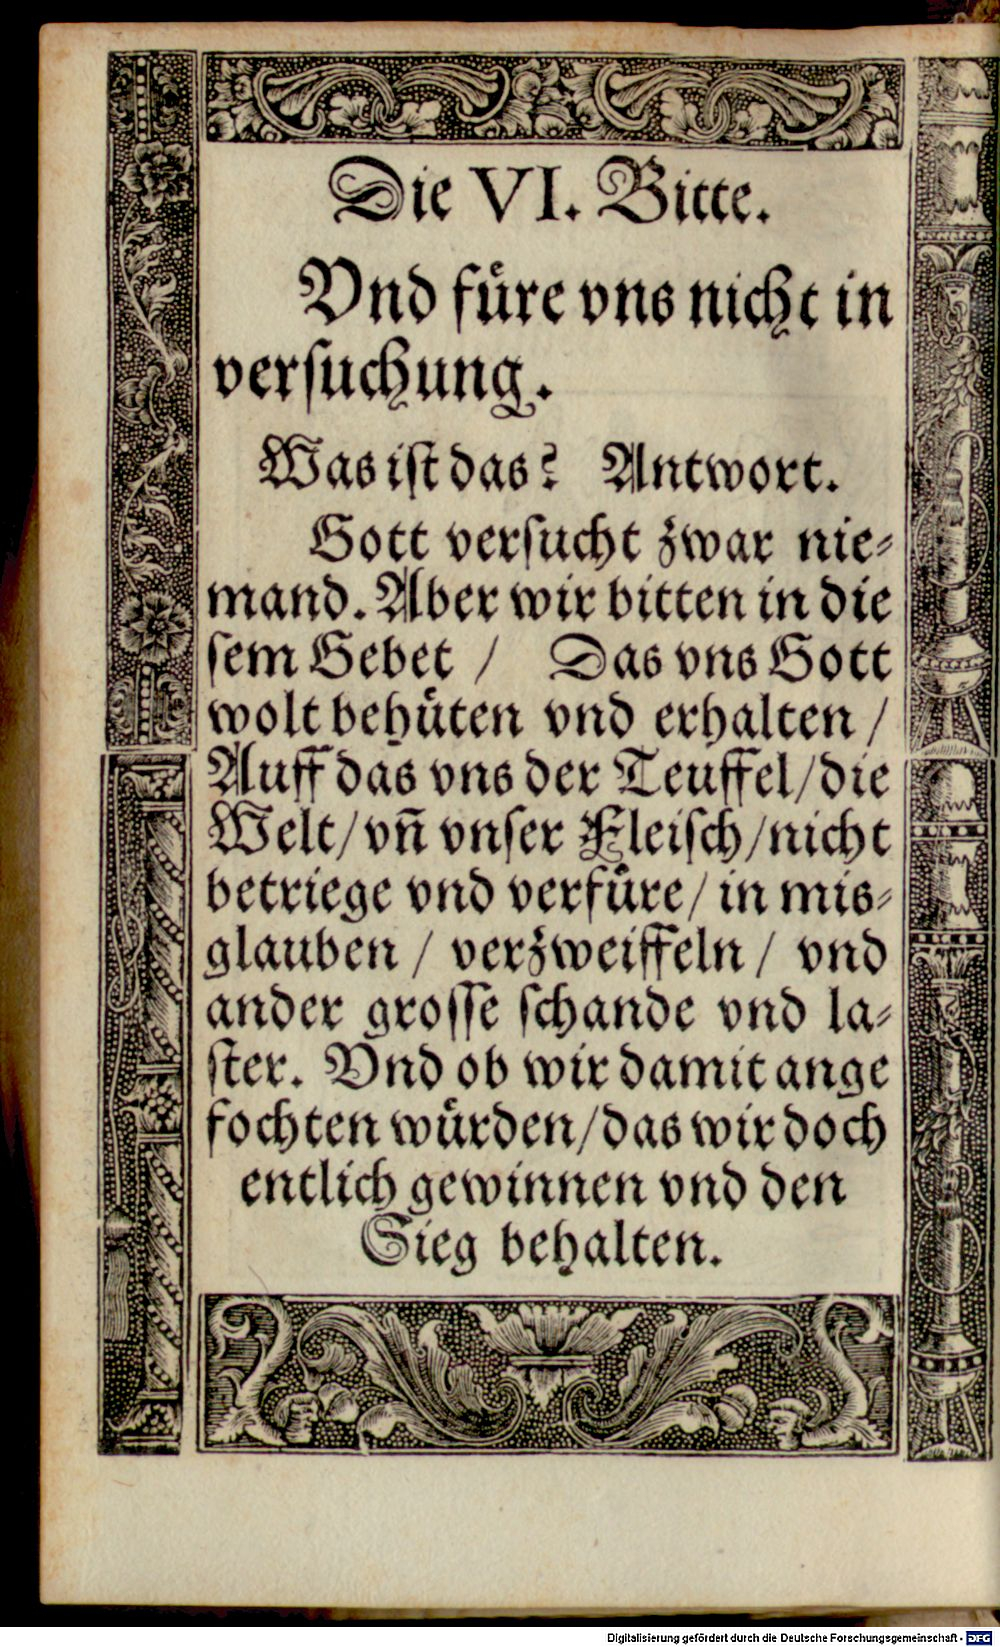 Die VI. Bitte.
Vnd fuͤre vns nicht in
verſuchung.
Was iſt das? Antwort.
Gott verſucht zwar nie⸗
mand. Aber wir bitten in die
ſem Gebet / Das vns Gott
wolt behuͤten vnd erhalten /
Auff das vns der Teuffel / die
Welt / vn̄ vnſer Fleiſch / nicht
betriege vnd verfuͤre / in mis⸗
glauben / verzweiffeln / vnd
ander groſſe ſchande vnd la⸗
ſter. Vnd ob wir damit ange
fochten wuͤrden / das wir doch
entlich gewinnen vnd den
Sieg behalten.
Digitalisierung gefördert durch die Deutsche Forschungsgemeinschaft - DFG